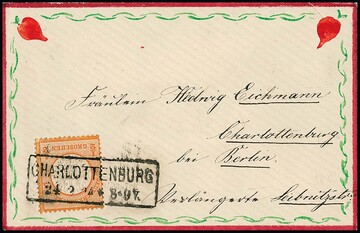 Fräulein Hedwig Eichmann
Charlottenburg
bei Berlin.
Verlängerte Leibnitzstr.
GROSCHEN
CHARLOTTENBURG
24 2 8-9V.